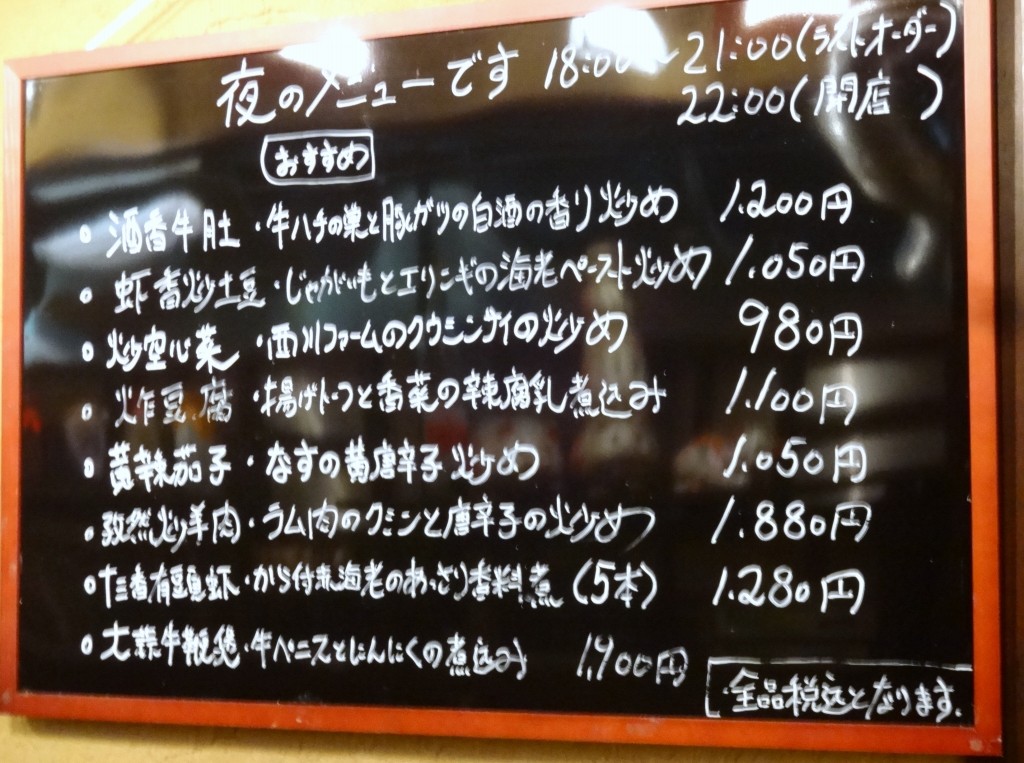 夜のメニューです 18:00~21:00(ラストオーダー)
22:00(閉店 )
おすすめ
酒香牛肚・牛ハチの巣と豚ガツの白酒の香り炒め 1.200円
虾香炒土豆・じゃがいもとエリンギの海老ペースト炒め 1.050円
炒空心菜・西川ファームのクウシンサイの炒め 980円
炸豆腐・揚げトーフと香菜の辣腐乳煮込み 1.100円
黄辣茄子・なすの黄唐辛子炒め 1.050円
孜然炒羊肉・ラム肉のクミンと唐辛子の炒め 1.880円
十三香有頭虾・から付赤海老のあっさり香料煮(5本) 1.280円
大蒜牛鞭煲・牛ペニスとにんにくの煮込み 1,900円
全品税込となります.